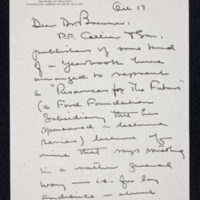 Oct 17
Dear Dr Bronner:
P.F. Collier & Son,
publishers of some kind
of a Yearbook have
arranged to reprint
a "Resources for The Future"
(a Ford Foundation
Subsidiary that has
sponsored a lecture
series) lecture of
mine that says something
in a rather general
way — i.e. for lay
audience — about